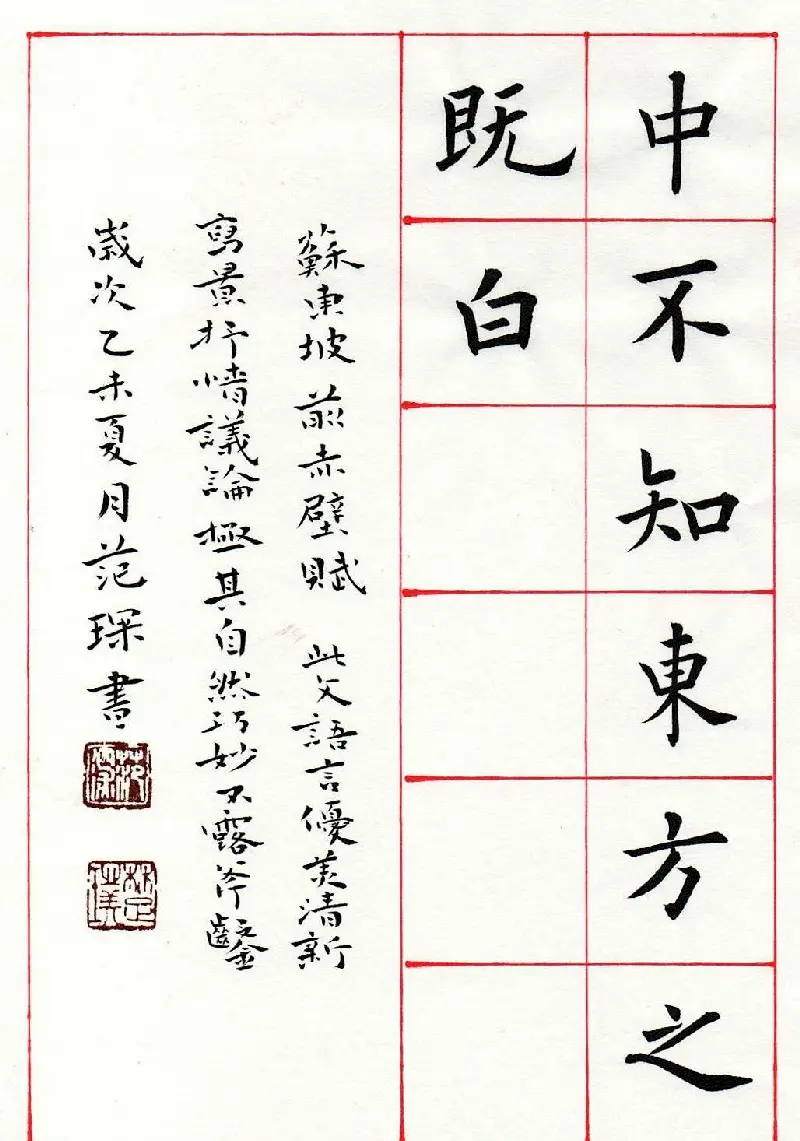 中不知東方之
既白
蘇東坡前赤壁賦 此文語言優美清新
寫景抒情議論極其自然巧妙不露斧鑿
歲次乙未夏月范琛書